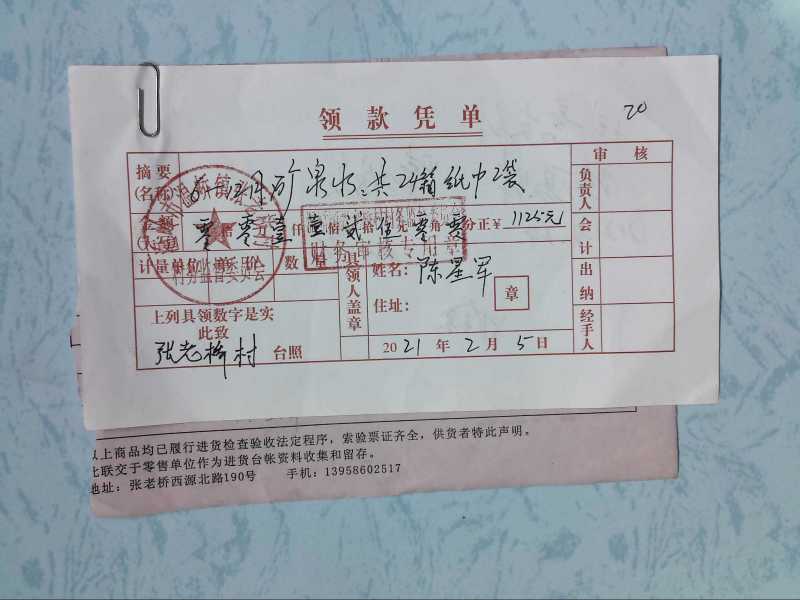 领款凭单
20
摘要(名称) 矿泉水：共24箱 纸巾2袋
审核
金额(大写) 零 零万壹仟壹佰贰拾伍元零角零分正￥1125元
负责人
会计
计量单位 单价 数量
具领人盖章
姓名：陈星军
住址：
章
出纳
上列具领数字是实
此致
张老桥村 台照
2021年2月5日
经手人
以上商品均已履行进货检查验收法定程序，索验票证齐全，供货者特此声明。
此联交于零售单位作为进货台帐资料收集和留存。
地址：张老桥西源北路190号 手机：13958602517